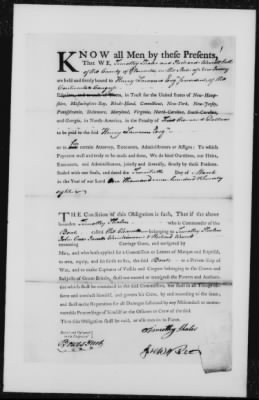 KNOW all Men by these Presents,
That WE, Timothy Shaler and
of the County of in the State of New Jersey
are held and firmly bound to Henry Laurens Esqr. president of the
Continental Congress
in Trust for the United States of New-Hamp-
shire, Massachusetts-Bay, Rhode-Island, Connecticut, New-York, New-Jersey,
Pennsylvania, Delaware, Maryland, Virginia, North-Carolina, South-Carolina,
and Georgia, in North-America, in the Penalty of Dollars
to be paid to the said Henry Laurens Esqr.
or his certain Attorney, Executors, Administrators or Assigns: To which
Payment well and truly to be made and done, We do bind Ourselves, our Heirs,
Executors, and Administrators, jointly and severally, firmly by these Presents.
Sealed with our Seals, and dated the Twentieth Day of March
in the Year of our Lord One thousand seven hundred Seventy
eight
THE Condition of this Obligation is such, That if the above
bounden Timothy Shaler who is Commander of the
Boat called the belonging to Timothy Shaler
John Cox
Carriage Guns, and navigated by
Men, and who hath applied for a Commission or Letters of Marque and Reprisal,
to arm, equip, and set forth to Sea, the said Boat as a Private Ship of
War, and to make Captures of Vessels and Cargoes belonging to the Crown and
Subjects of Great-Britain, shall not exceed or transgress the Powers and Autho-
rities which shall be contained in the said Commission, but shall in all Things ob-
serve and conduct himself, and govern his Crew, by and according to the same;
and shall make Reparation for all Damages sustained by any Misconduct or unwar-
rantable Proceedings of himself or the Officers or Crew of the said
Then this Obligation shall be void, or else remain in Force.
Timothy Shaler
Sealed and Delivered
in the Presence of
Bowes Reed